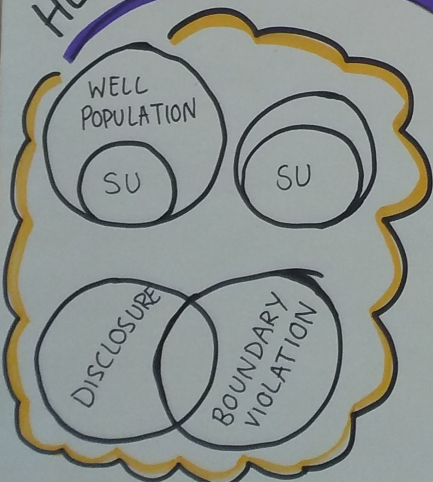 WELL
POPULATION
SU
SU
DISCLOSURE
BOUNDARY
VIOLATION